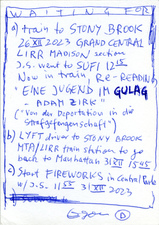 WAITING FOR
a) train to STONY BROOK
26 XII 2023 GRAND CENTRAL
LIRR MADISON/section
J.S. went to SUFI 12 15
Now in train, RE-READING
"EINE JUGEND IM GULAG
- ADAM ZIRK"
("Von der Deportation in die
Strafgefangenschaft")
b) LYFT driver to STONY BROOK
MTA/LIRR train station to go
back to Manhattan 31 XII 15 45
c) Start FIREWORKS in Central Park
w/J.S. 11 55 31 XII 2023